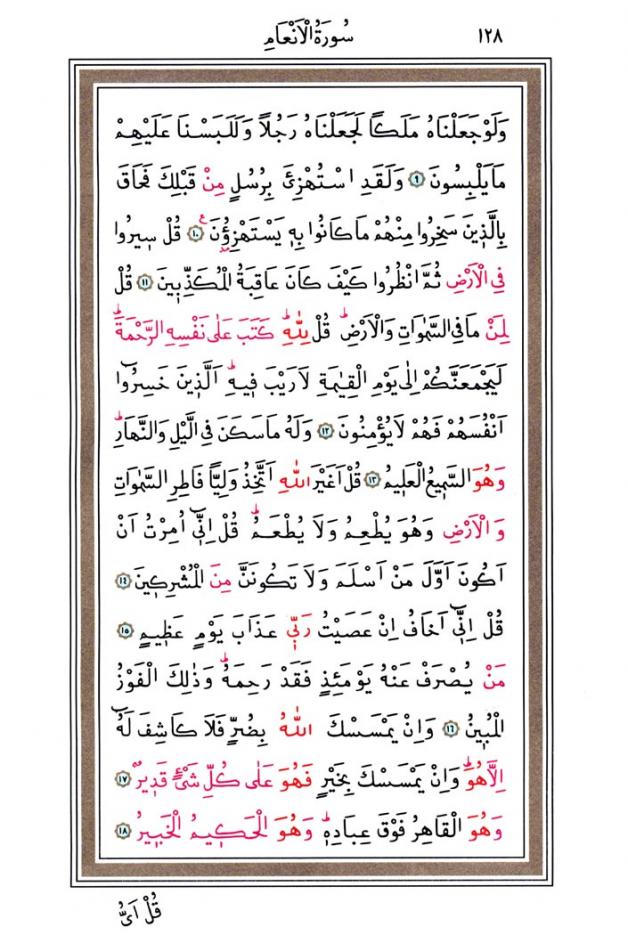 ١٢٨ سُورَةُ الْاَنْعَامِ
وَلَوْ جَعَلْنَاهُ مَلَكًا لَجَعَلْنَاهُ رَجُلًا وَلَلَبَسْنَا عَلَيْهِمْ
مَا يَلْبِسُونَ ٩ وَلَقَدِ اسْتُهْزِئَ بِرُسُلٍ مِنْ قَبْلِكَ فَحَاقَ
بِالَّذِينَ سَخِرُوا مِنْهُمْ مَا كَانُوا بِهِ يَسْتَهْزِؤُنَ ١٠ قُلْ سِيرُوا
فِي الْاَرْضِ ثُمَّ انْظُرُوا كَيْفَ كَانَ عَاقِبَةُ الْمُكَذِّبِينَ ١١ قُلْ
لِمَنْ مَا فِي السَّمٰوَاتِ وَالْاَرْضِۜ قُلْ لِلّٰهِۜ كَتَبَ عَلٰى نَفْسِهِ الرَّحْمَةَۜ
لَيَجْمَعَنَّكُمْ اِلٰى يَوْمِ الْقِيٰمَةِ لَا رَيْبَ فِيهِۜ اَلَّذِينَ خَسِرُٓوا
اَنْفُسَهُمْ فَهُمْ لَا يُؤْمِنُونَ ١٢ وَلَهُ مَا سَكَنَ فِي الَّيْلِ وَالنَّهَارِۜ
وَهُوَ السَّمِيعُ الْعَلِيمُ ١٣ قُلْ اَغَيْرَ اللّٰهِ اَتَّخِذُ وَلِيًّا فَاطِرِ السَّمٰوَاتِ
وَالْاَرْضِ وَهُوَ يُطْعِمُ وَلَا يُطْعَمُۜ قُلْ اِنِّٓي اُمِرْتُ اَنْ
اَكُونَ اَوَّلَ مَنْ اَسْلَمَ وَلَا تَكُونَنَّ مِنَ الْمُشْرِكِينَ ١٤
قُلْ اِنِّٓي اَخَافُ اِنْ عَصَيْتُ رَبِّي عَذَابَ يَوْمٍ عَظِيمٍ ١٥
مَنْ يُصْرَفْ عَنْهُ يَوْمَئِذٍ فَقَدْ رَحِمَهُۜ وَذٰلِكَ الْفَوْزُ
الْمُبِينُ ١٦ وَاِنْ يَمْسَسْكَ اللّٰهُ بِضُرٍّ فَلَا كَاشِفَ لَهُٓ
اِلَّا هُوَۜ وَاِنْ يَمْسَسْكَ بِخَيْرٍ فَهُوَ عَلٰى كُلِّ شَيْءٍ قَدِيرٌ ١٧
وَهُوَ الْقَاهِرُ فَوْقَ عِبَادِهِۜ وَهُوَ الْحَكِيمُ الْخَبِيرُ ١٨
قُلْ اَيُّ